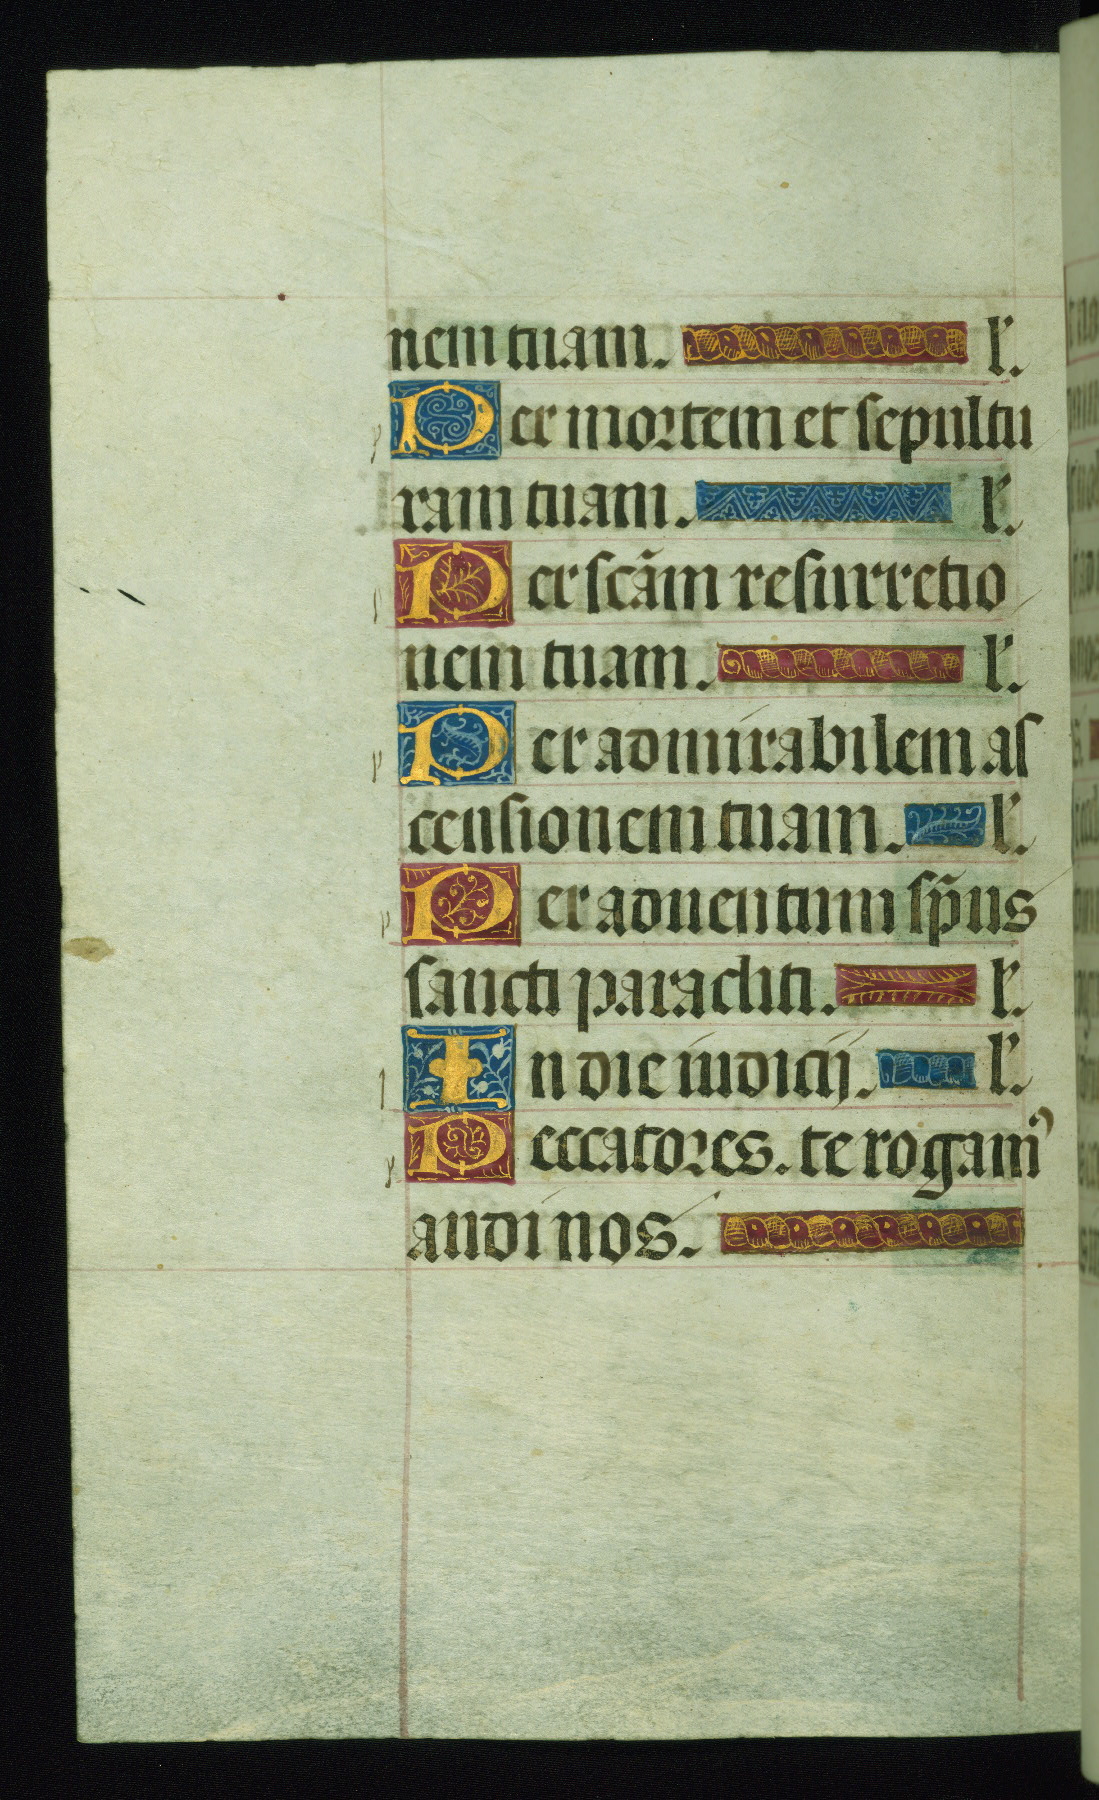 nem tuam. l.
Per mortem et sepultu
ram tuam. l.
Per scãm resurretio
nem tuam. l.
Per admirabilem as
censionem tuam. l.
Per aduentum sp̃us
sancti paracliti. l.
In die iudicij. l.
Peccatores. te rogamꝰ
audi nos.